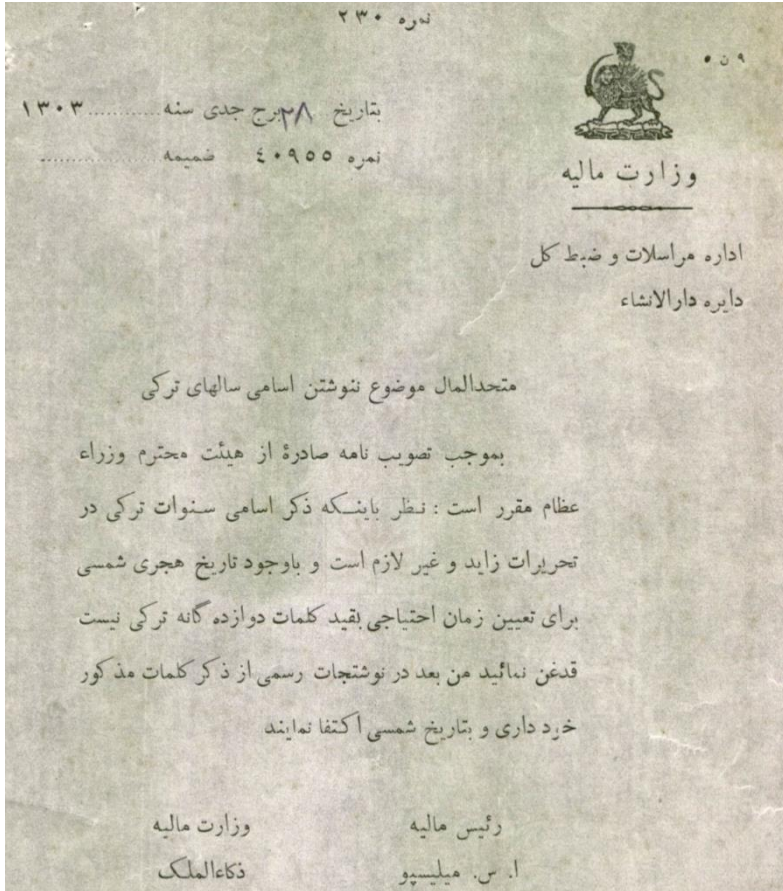 نمره ۲۳۰
۹ ن ۵
وزارت مالیه
بتاریخ ۲۸ برج جدی سنه ............ ۱۳۰۳
نمره ٤۰۹٥٥ ضمیمه ............
اداره مراسلات و ضبط کل
دایره دارالانشاء
متحدالمال موضوع ننوشتن اسامی سالهای ترکی
بموجب تصویب نامه صادرهٔ از هیئت محترم وزراء
عظام مقرر است : نظر باینکه ذکر اسامی سنوات ترکی در
تحریرات زاید و غیر لازم است و باوجود تاریخ هجری شمسی
برای تعیین زمان احتیاجی بقید کلمات دوازده گانه ترکی نیست
قدغن نمائید من بعد در نوشتجات رسمی از ذکر کلمات مذکور
خرد داری و بتاریخ شمسی اکتفا نمایند
رئیس مالیه وزارت مالیه
ا. س. میلیسپو ذکاءالملک